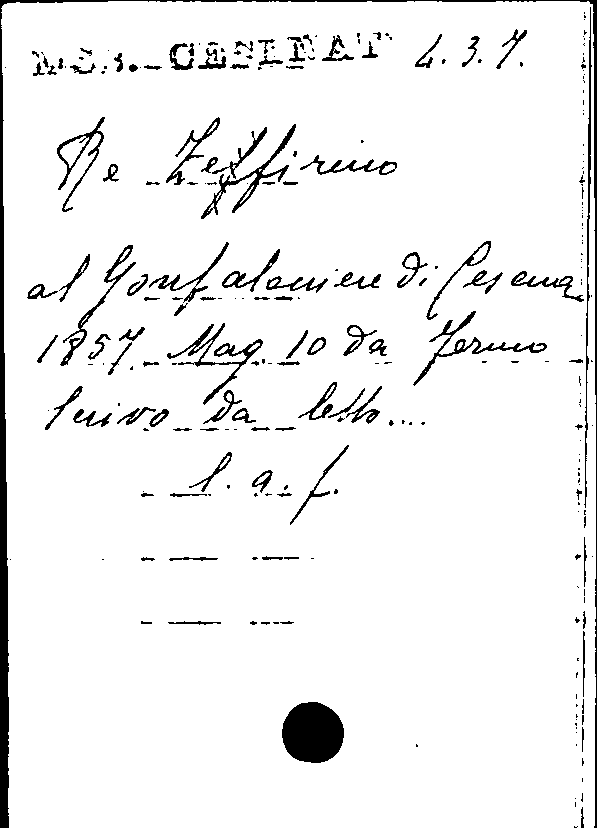 MSS. CESINAT 4.3.7.
Re Zeffirino
al Gonfaloniere di Cesena
1857 Mag. 10 da Fermo
Scrivo da letto....
l. a. f.